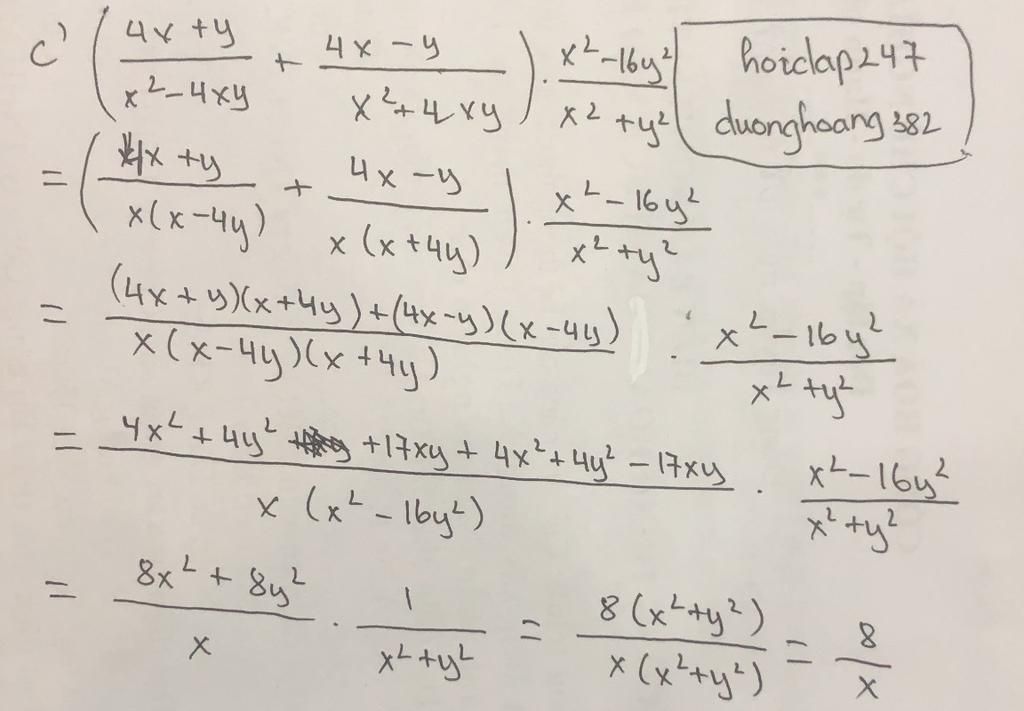 c) (4x + y / x² - 4xy + 4x - y / x² + 4xy) . x² - 16y² / x² + y²
hoidap247
duonghoang382
= (4x + y / x(x - 4y) + 4x - y / x(x + 4y)) . x² - 16y² / x² + y²
= (4x + y)(x + 4y) + (4x - y)(x - 4y) / x(x - 4y)(x + 4y) . x² - 16y² / x² + y²
= 4x² + 4y² + 17xy + 4x² + 4y² - 17xy / x(x² - 16y²) . x² - 16y² / x² + y²
= 8x² + 8y² / x . 1 / x² + y² = 8(x² + y²) / x(x² + y²) = 8 / x